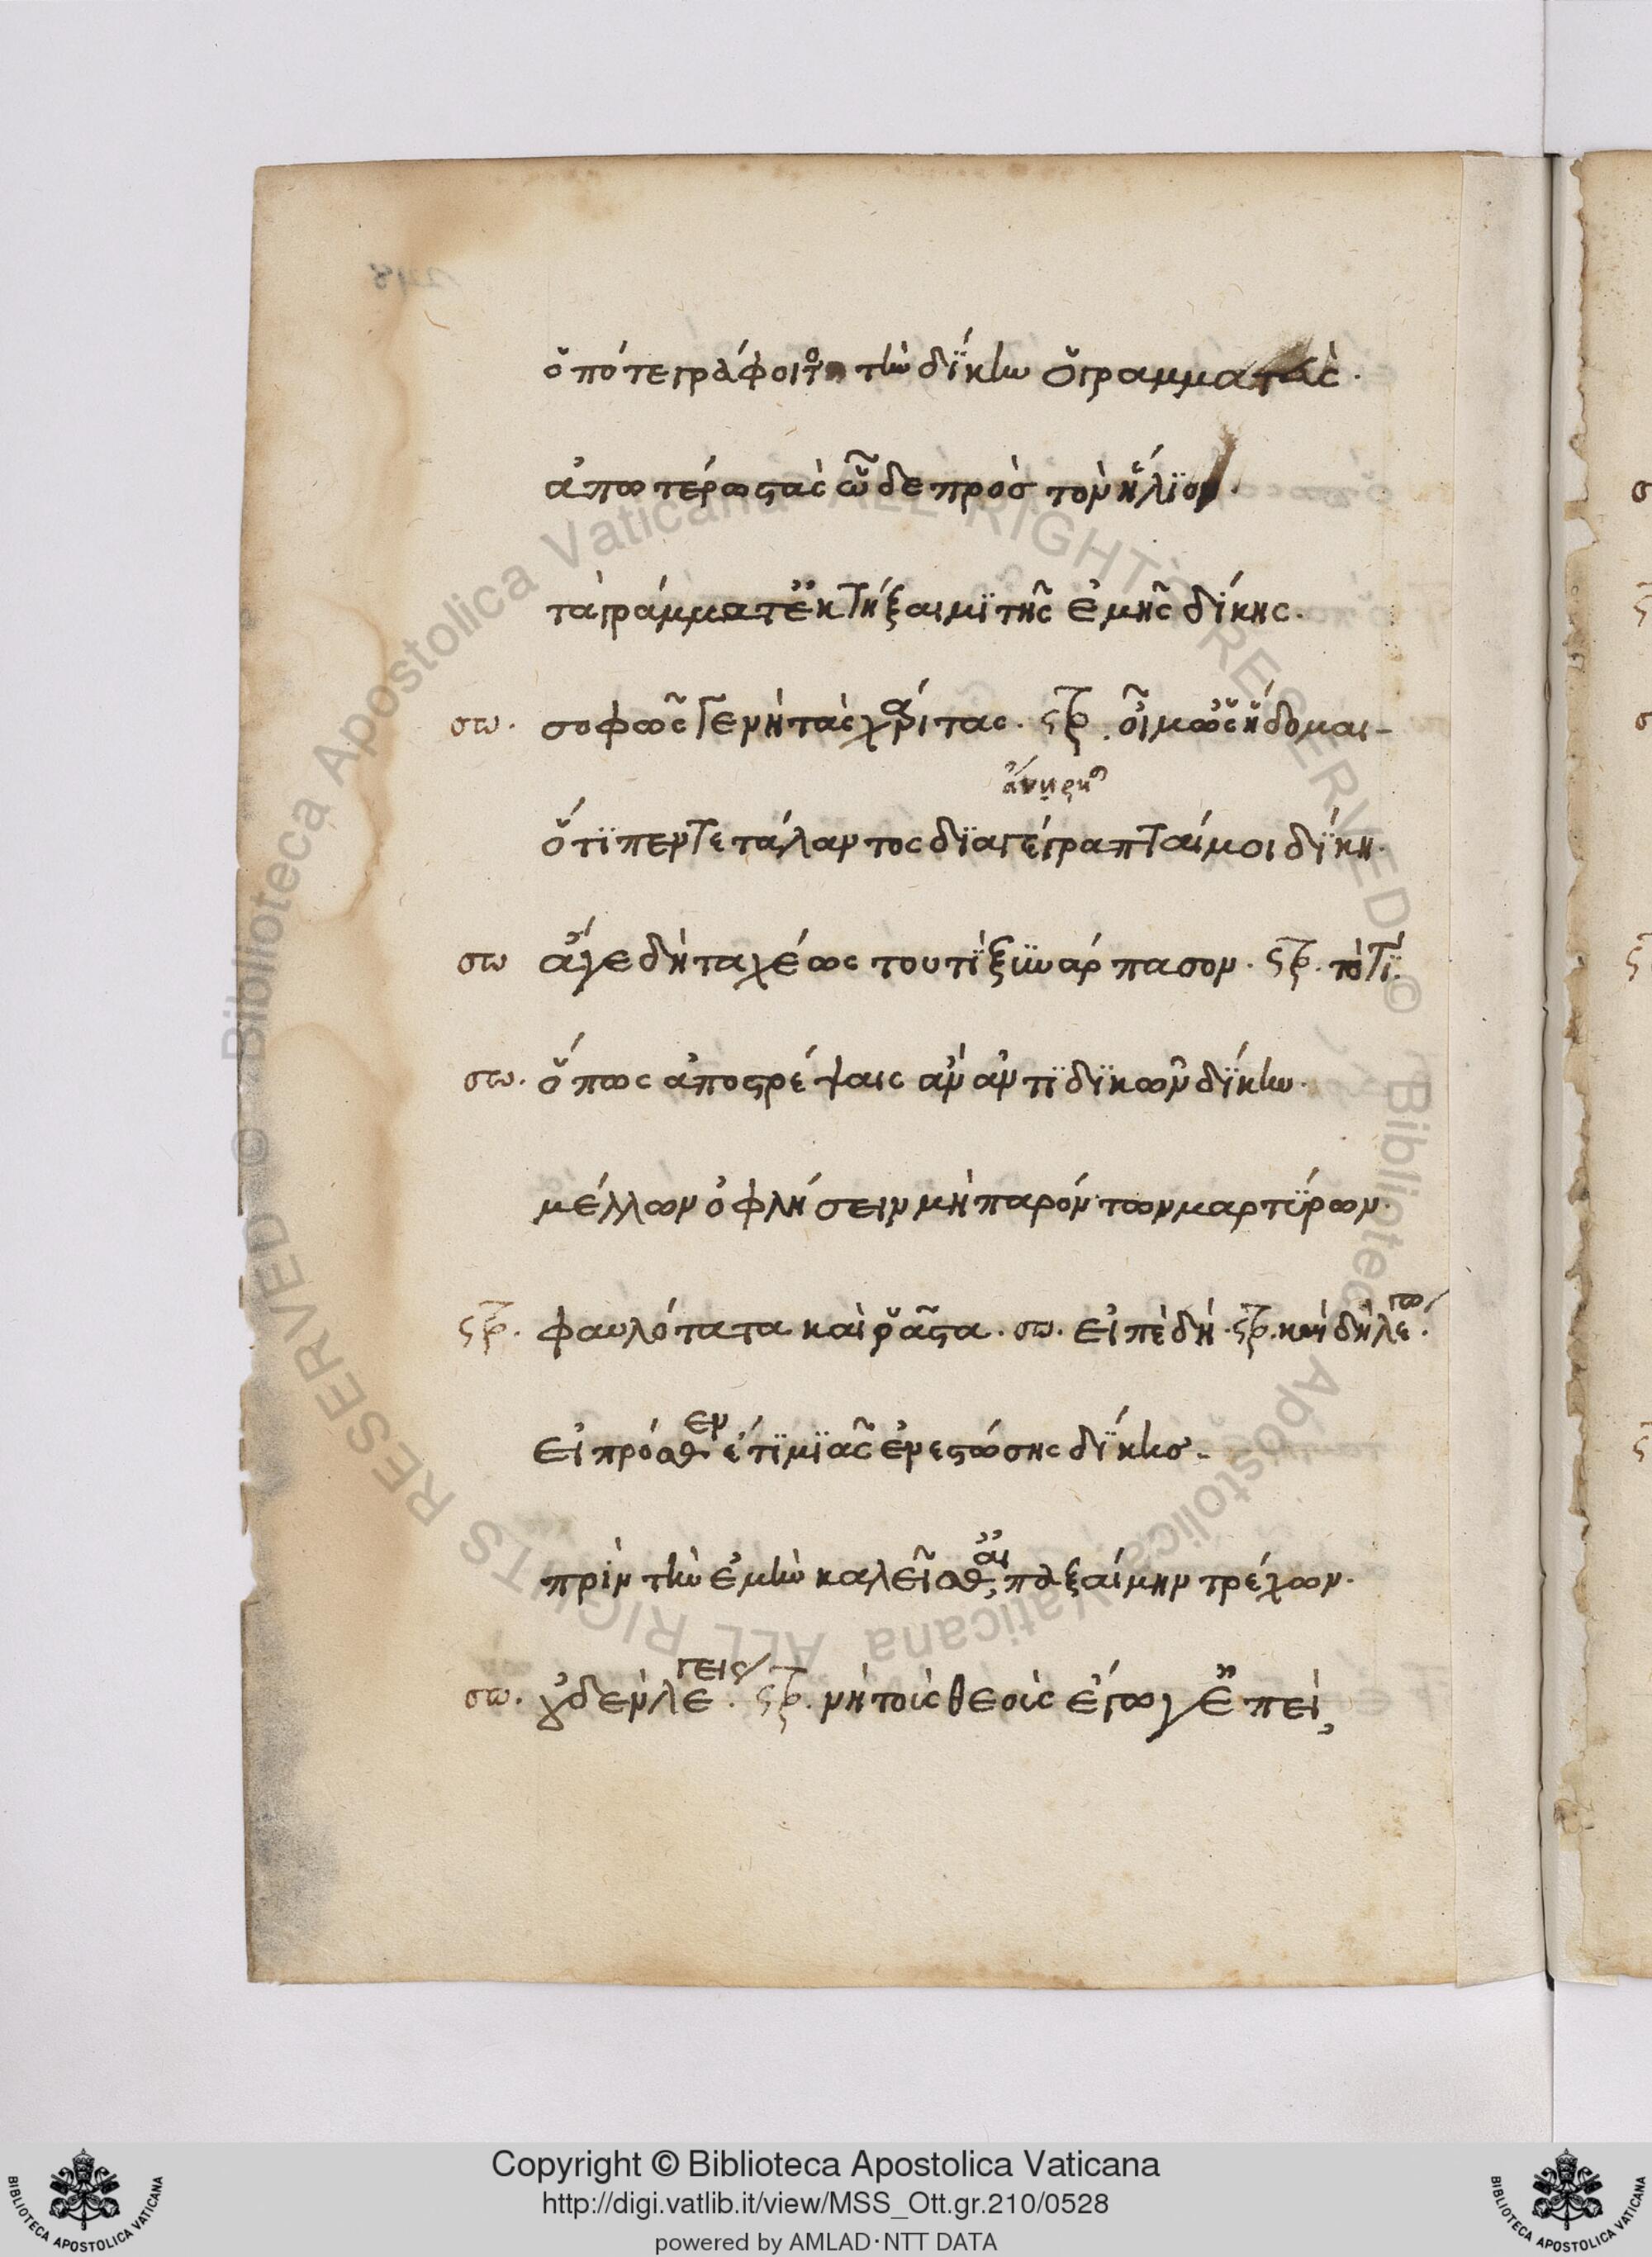 ὁπότε γράφοιτο τὴν δίκην ὁ γραμματεὺς.
ἀπωτέρω στὰς ὧδε πρὸσ τὸν ἥλϊον.
τὰ γράμματ' ἐκτήξαιμϊ τῆς ἐμῆς δίκης.
σω. σοφῶς γε νὴ τὰς χάριτας. στρ. οἶμ' ὡς ἥδομαι
ἀνῃρη
ὅτϊ πεντετάλαντος δϊαγέγραπταί μοι δίκη.
σω ἄγε δὴ ταχέως τουτῒ ξυνάρπασον. στρ. τὸ τί.
σω. ὅπως ἀποστρέψαις ἂν ἀντϊδϊκῶν δίκην.
μέλλων ὀφλήσειν μὴ παρόντων μαρτύρων.
στρ. φαυλότατα καὶ ῥᾷστα. σω. εἰπὲ δή. στρ. καὶ δὴ λέγω.
εἰ πρόσθεν ἔτϊ μϊᾶς ἐνεστώσης δίκης.
πρὶν τὴν ἐμὴν καλεῖσθαι, ἀπαγξαίμην τρέχων.
σω. οὐδὲν λέγεις. στρ. νὴ τοὺς θεοὺς ἔγωγ' ἐπεὶ,
Copyright © Biblioteca Apostolica Vaticana
http://digi.vatlib.it/view/MSS_Ott.gr.210/0528
powered by AMLAD·NTT DATA